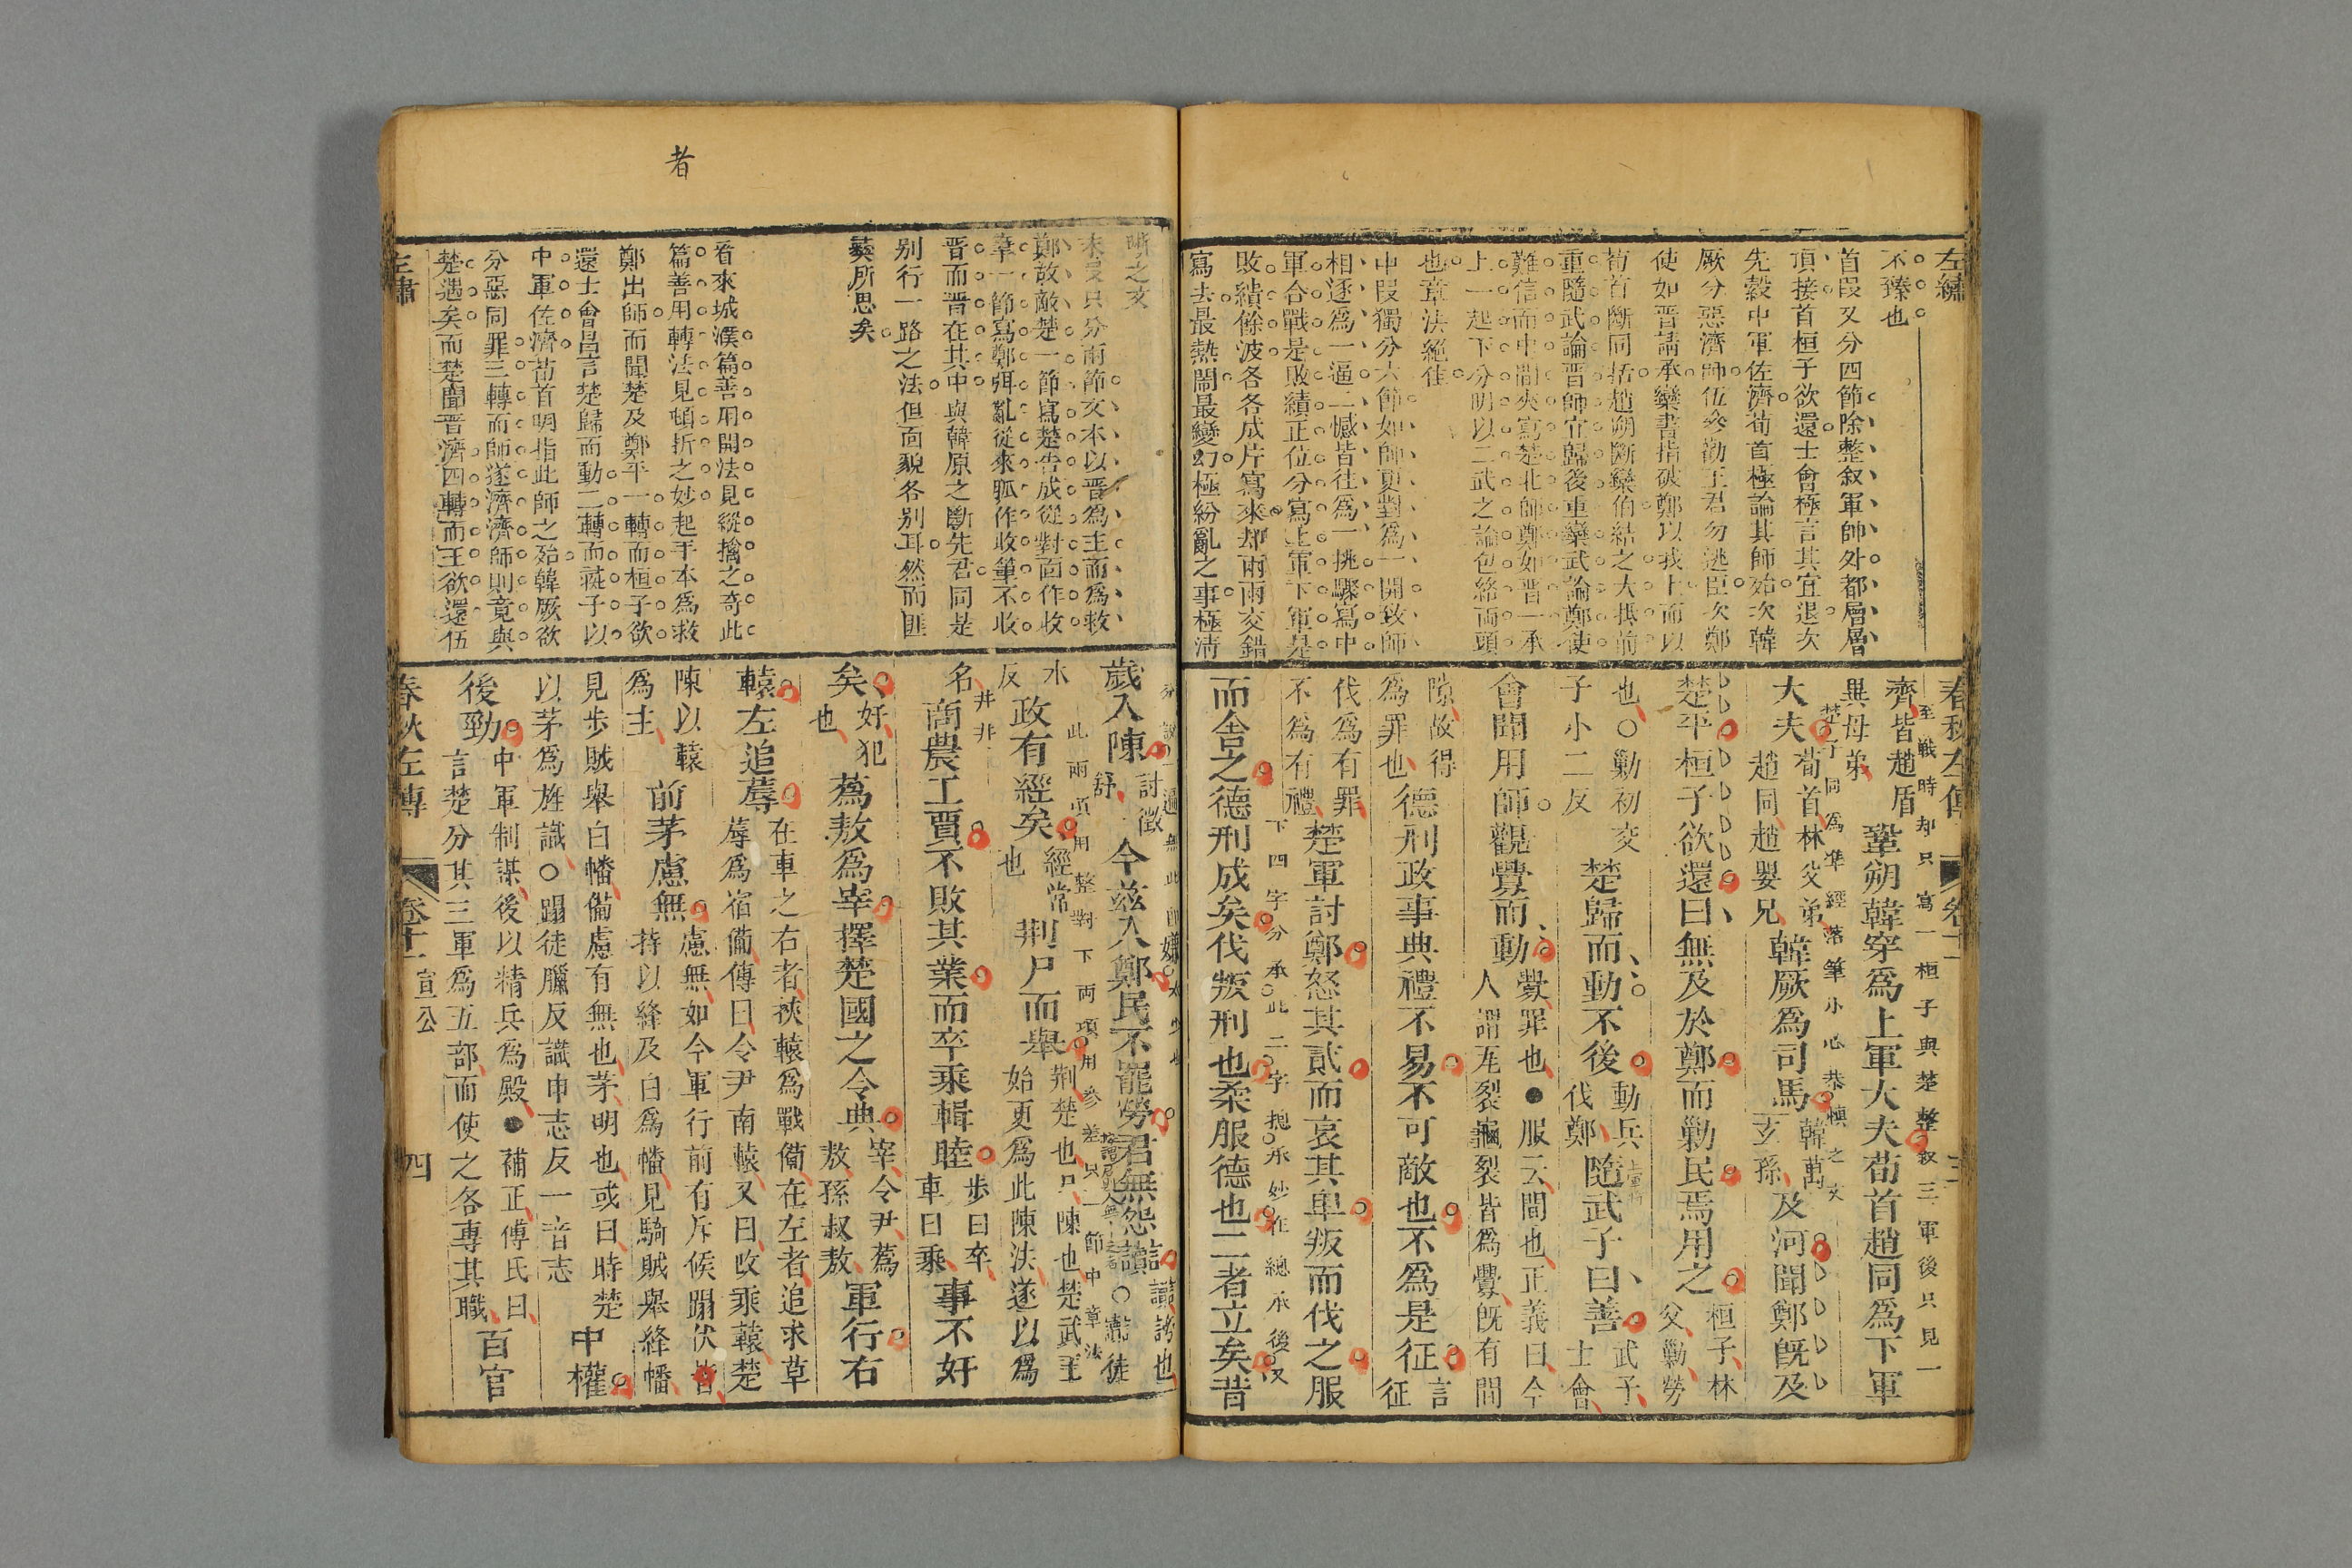 左繡
不臻也
首段又分四節除整叙軍帥外都層層
頂接首桓子欲還士會極言其宜退次
先縠中軍佐濟荀首極論其師殆次韓
厥分惡濟師伍參勸王君勿逃臣次鄭
使如晋請承欒書指破鄭以我卜而以
荀首斷同括趙朔斷欒伯結之大抵前
重隨武論晋師宜歸後重欒武論鄭使
難信而中間夾寫楚北師鄭如晋一承
上一起下分明以二武之論包絡兩頭
也章法絕佳
中段獨分六節如師更對爲一開致師
相逐爲一逼二憾皆往爲一挑驟寫中
軍合戰是敗績正位分寫上軍下軍是
敗績餘波各各成片寫來却兩兩交錯
寫去最熱鬧最變幻極紛亂之事極清
春秋左傳 卷十一 三
至戰時却只寫一桓子與楚整叙三軍後只見一
齊皆趙盾
異母弟
鞏朔韓穿爲上軍大夫荀首趙同爲下軍
楚子同爲準經落筆小心恭慎之文
大夫
荀首林父弟
趙同趙嬰兄
韓厥爲司馬
韓萬
玄孫
及河聞鄭旣及
楚平桓子欲還曰無及於鄭而勦民焉用之
桓子林
父勦勞
也○勦初交
子小二反
楚歸而動不後
動兵
伐鄭
隨武子曰善
武子
士會
會聞用師觀釁而動
釁罪也●服云間也正義曰今
人謂瓦裂龜裂皆爲釁旣有間
隙故得
爲罪也
德刑政事典禮不易不可敵也不爲是征
言
征
伐爲有罪
不爲有禮
楚軍討鄭怒其貳而哀其卑叛而伐之服
下四字分承此二字揔承妙在總承後又
而舍之德刑成矣伐叛刑也柔服德也二者立矣昔
者
晰之文
來受只分兩節文本以晋爲主而爲救
鄭故敵楚一節寫楚告成從對面作收
宰一節寫鄭弭亂從來派作收筆不收
晋而晋在其中與韓原之斷先君同是
別行一路之法但面貌各別耳然而匪
夷所思矣
看來城濮篇善用開法見縱擒之奇此
篇善用轉法見頓折之妙起手本爲救
鄭出師而聞楚及鄭平一轉而桓子欲
還士會昌言楚歸而動二轉而彘子以
中軍佐濟荀首明指此師之殆韓厥欲
分惡同罪三轉而師遂濟濟師則竟與
楚遇矣而楚聞晋濟四轉而王欲還伍
左繡
歲入陳
討徵
舒
今兹入鄭民不罷勞君無怨讟
讟謗也
○罷徒
此兩項用整對下兩項用參差只一節中章法
木
反
政有經矣
經常
也
荆尸而舉
荆楚也尸陳也楚武王
始更爲此陳法遂以爲
井井
名
商農工賈不敗其業而卒乘輯睦
步曰卒
車曰乘
事不奸
矣
奸犯
也
蔿敖爲宰擇楚國之令典
宰令尹蔿
敖孫叔敖
軍行右
轅左追蓐
在車之右者挾轅爲戰備在左者追求草
蓐爲宿備傳曰令尹南轅又曰改乘轅楚
陳以轅
爲主
前茅慮無
慮無如今軍行前有斥候蹋伏皆
持以絳及白爲幡見騎賊舉絳幡
見步賊舉白幡備慮有無也茅明也或曰時楚
以茅爲旌識○蹋徒臘反識申志反一音志
中權
後勁
中軍制謀後以精兵爲殿●補正傅氏曰
言楚分其三軍爲五部而使之各專其職
百官
春秋左傳 卷十一 宣公 四